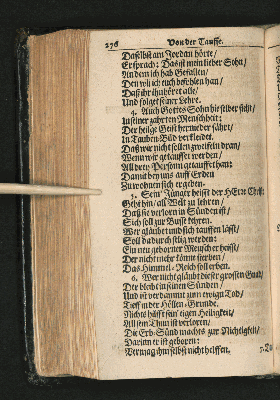 276 Von der Tauffe.
Daselbst am Jordan hörte/
Er sprach: Das ist mein lieber Sohn/
An dem ich hab Gefallen/
Den wil ich euch befohlen han/
Daß ihr ihn höret alle/
Und folget seiner Lehre.
4. Auch Gottes Sohn hie selber steht/
In seiner zahrten Menschheit:
Der heilge Geist hernieder fährt/
In Tauben-Bild verkleidet.
Daß wir nicht sollen zweifeln dran/
Wenn wir getauffet werden/
All drey Person getauffet han:
Damit bey uns auff Erden
Zu wohnen sich ergeben.
5. Sein Jünger heisst der HErr Christ:
Geht hin/ all Welt zu lehren/
Daß sie verlorn in Sünden ist/
Sich soll zur Busse kehren.
Wer gläubet und sich tauffen läßt/
Soll dadurch selig werden:
Ein neu geborner Mensch er heißt/
Der nicht mehr könne sterben/
Das Himmel-Reich soll erben.
6. Wer nicht gläubt dieser grossen Gnad/
Der bleibt in seinen Sünden/
Und ist verdammt zum ewign Tod/
Tieff in der Höllen-Grunde.
Nichts hilfft sein eigen Heiligkeit/
All sein Thun ist verloren/
Die Erb-Sünd machts zur Nichtigkeit/
Darinn er ist geboren:
Vermag ihm selbst nicht helffen.